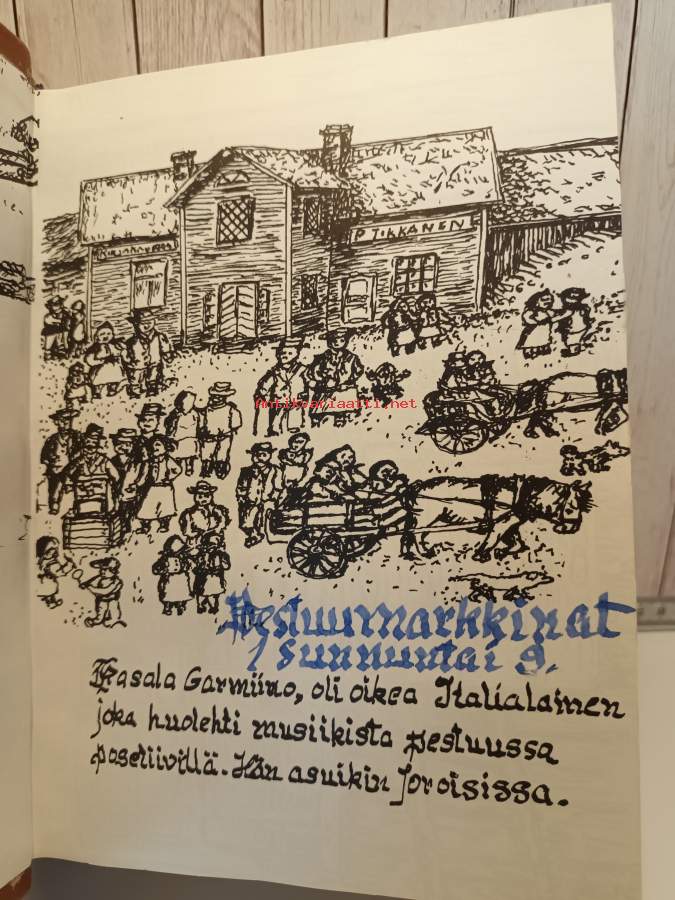 P TIKKANEN
antikvariaatti.net
Pestuumarkkinat
1 sunnuntai 9.
Kasala Garmiino, oli oikea Italialainen
joka huolehti musiikista pestuussa
posetiivillä. Hän asuikin Joroisissa.